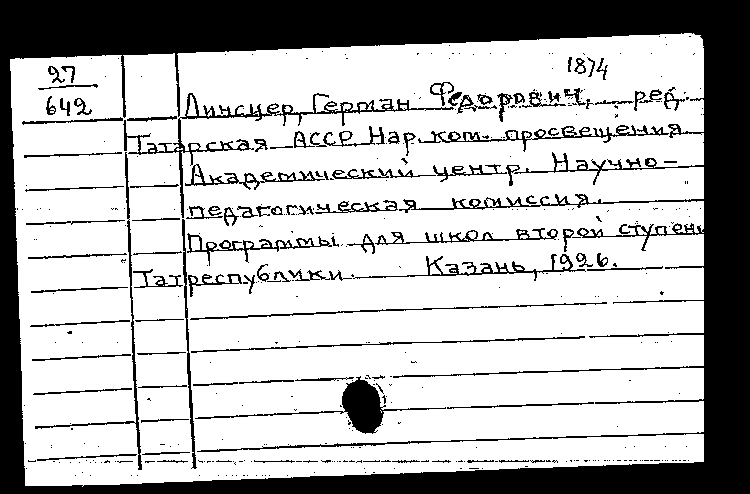 27
1874
642
Линсцер, Герман Федорович, ред.
Татарская АССР. Нар. ком. просвещения
Академический центр. Научно-
педагогическая комиссия.
Программы для школ второй ступени
Татреспублики. Казань, 1926.